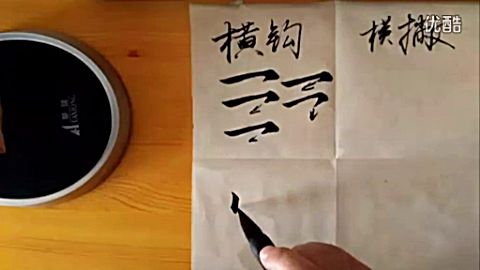 横钩
横撇
优酷